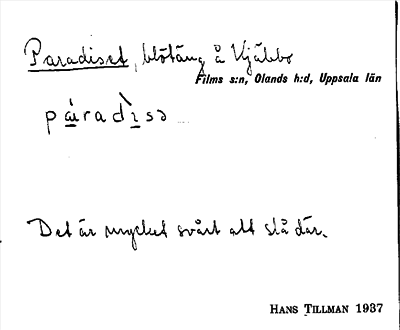 Paradiset, blötäng å Kjäbbo
Films s:n, Olands h:d, Uppsala län
páradìsə
Det är mycket svårt att slå där.
HANS TILLMAN 1937